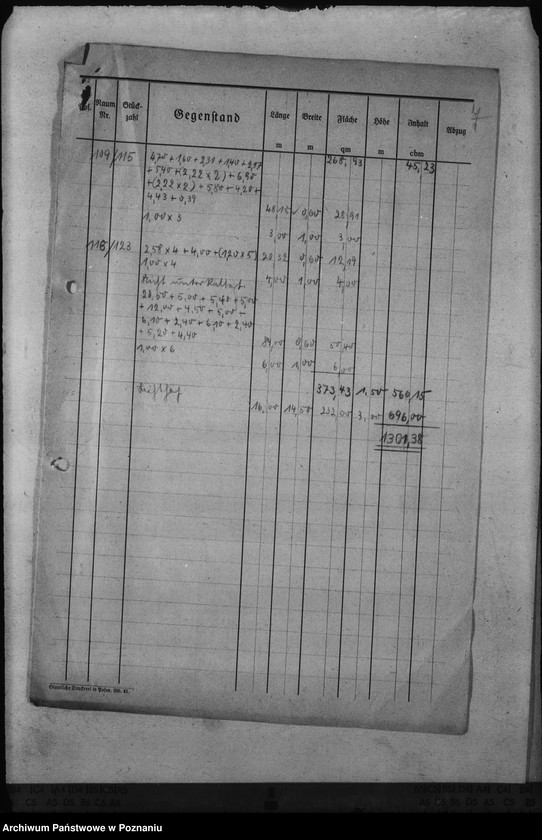 4
Raum Nr. Stück-zahl Gegenstand Länge m Breite m Fläche qm Höhe m Inhalt cbm Abzug
109/115 4,70 + 1,60 + 2,31 + 1,40 + 2,97 268,93 45,23
+ 5,40 + (2,22 x 2) + 6,90
+ (2,22 x 2) + 5,80 + 4,20 +
4,43 + 0,39
48,15 0,60 28,91
1,00 x 3
3,00 1,00 3,00
116/123 2,58 x 4 + 4,00 + (1,20 x 5) 20,32 0,60 12,19
1,00 x 4
4,00 1,00 4,00
28,50 + 5,00 + 5,40 + 5,00
+ 12,00 + 4,50 + 5,00 +
6,10 + 2,40 + 6,10 + 2,40
+ 5,20 + 4,40
84,00 0,60 50,40
1,00 x 6
6,00 1,00 6,00
373,43 1,50 560,15
16,00 14,50 232,00 3,00 696,00
1301,38
Staatliche Druckerei in Posen.
Archiwum Państwowe w Poznaniu